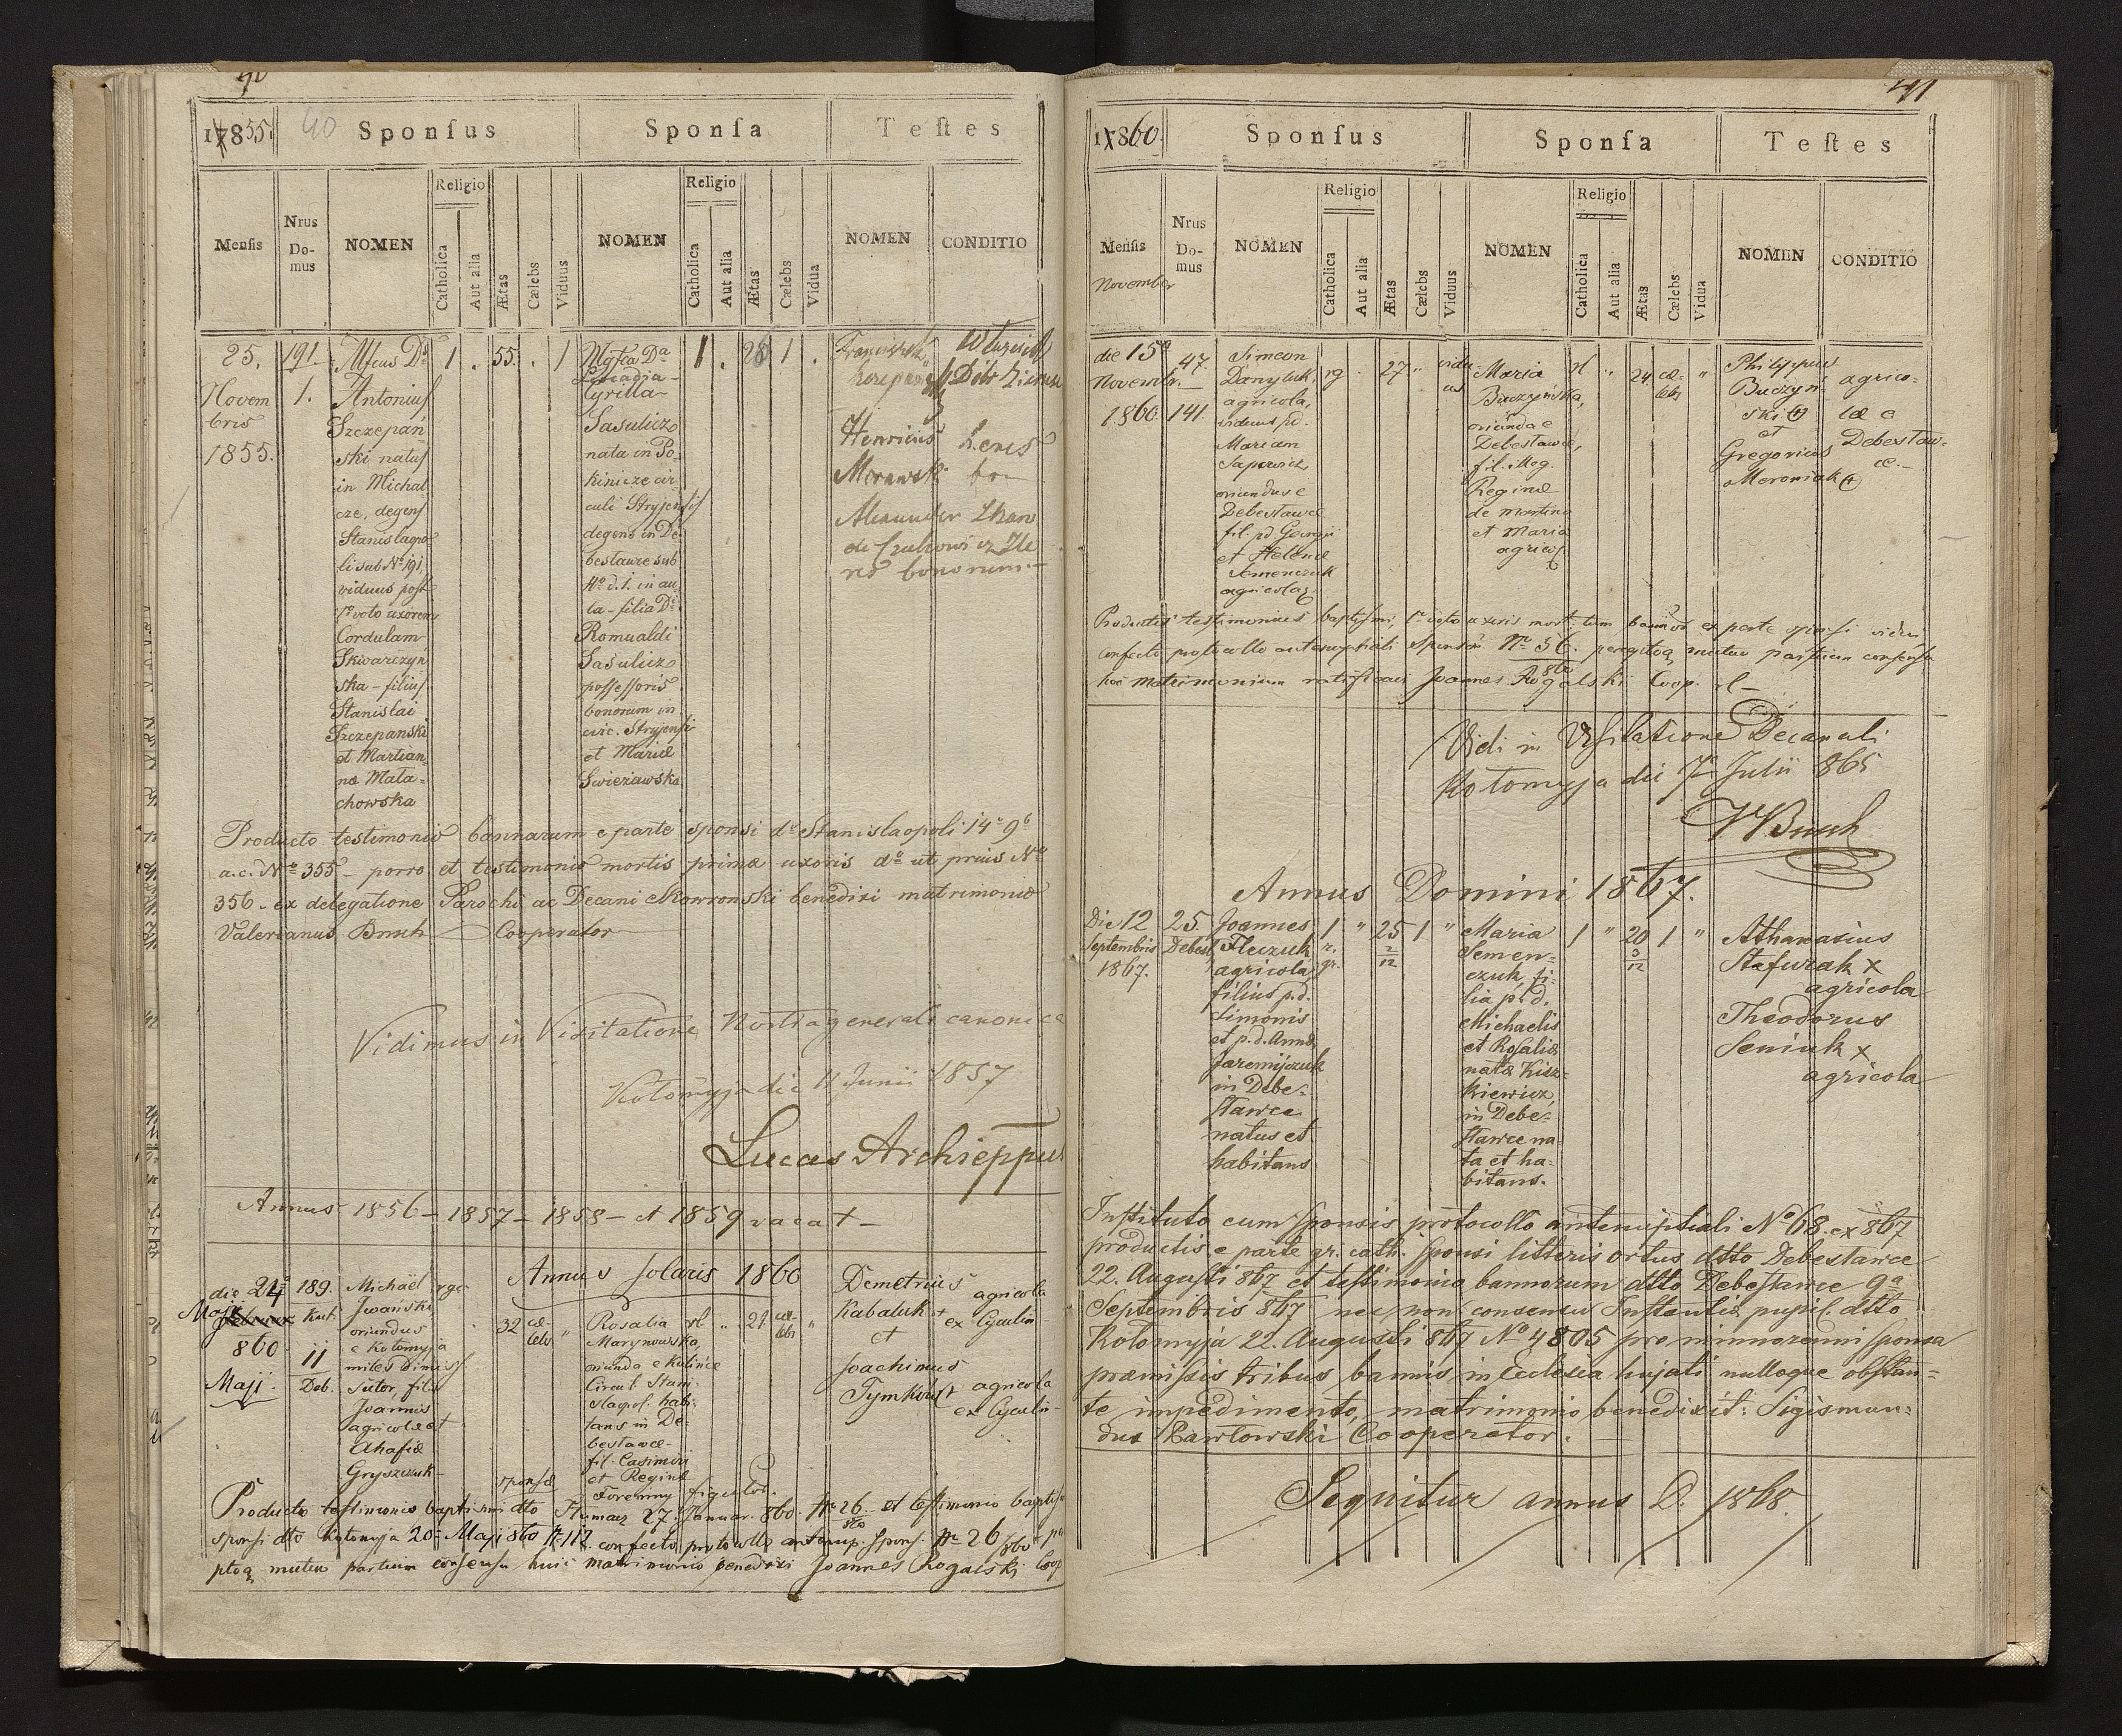 40
17855.
Sponſus
Sponſa
Teſtes
Menſis
Nrus Domus
NOMEN
Religio
Catholica
Aut alia
Ætas
Cælebs
Viduus
NOMEN
Religio
Catholica
Aut alia
Ætas
Cælebs
Vidua
NOMEN
CONDITIO
25.
Novem
bris
1855.
191.
1.
Antonius
Szczepań
ski natus
in Michal
cze, degens
Stanislapo
li sub No 191,
viduus post
1o voto uxorem
Cordulam
Skwarczyń
ska - filius
Stanislai
Szczepanski
et Martian
næ Mala-
chowska
1 . 55. . 1
Cyrilla
Sasulicz
nata in Po
kinicze cir
culi Stryjensis
degens in De
beslawce sub
No d. 1. in au
la - filia Di
Romualdi
Sasulicz
possessoris
bonorum in
circ. Stryjensi
et Mariæ
Swieżawska
1 . 28 1 .
Henricus
heres
bo
Alexander
bonorum
Producto testimonio bannorum e parte sponsi do Stanislaopoli 14o 9b
a. c. No 355 - porro et testimonio mortis primæ uxoris do ut prius No
356 - ex delegatione Parochi ac Decani Skowronski benedixi matrimonio
Valerianus Cooperator
Vidimus in Visitatione Nostra generali canonica
Kołomyja die 11 Junii 1857
Lucas Archieppus
Annus 1856 - 1857 - 1858 - et 1859 vacat -
Annus solaris 1860
die 24a
Maji
860
Maji
189.
11
Deb.
Michaël
Iwański
oriundus
e Kołomyja
miles dimiss.
sutor, fil.
Joannis
agricolæ et
Ahafiæ
Gryszczuk
rgc
32 cæ-
lebs "
Rosalia
Marynowska,
oriunda e
Circul. Stani-
slaop. habi-
tans in De-
beslawce
fil. Casimiri
et Reginæ
rl " 21 cæ-
lebs "
Demetrius
Kabaluk +
et
Joachimus
Tymków +
agricola
agricola
sponsæ
Producto testimonio baptismi dto 27. Januar. 860. No 26 et testimonio baptis
sponsi dto Kołomyja 20. Maji 860 No 112. confecto protocollo antenup. spons. No 26/860
mutuo partium consensu huic matrimonio benedixi Joannes Rogalski Coop
41
17860.
Sponſus
Sponſa
Teſtes
Menſis
November
Nrus Domus
NOMEN
Religio
Catholica
Aut alia
Ætas
Cælebs
Viduus
NOMEN
Religio
Catholica
Aut alia
Ætas
Cælebs
Vidua
NOMEN
CONDITIO
die 15a
Novembr.
1860
47.
141.
Simeon
Danyluk,
agricola,
viduus pd.
Mariam
oriundus e
Debeslawce
fil. pd Georgii
et Helenæ
Semenczuk
rg . 27 " vidu-
us
Maria
Buczyńska,
oriunda e
Debeslawce,
fil.
Reginæ
de
et Maria
rl " 24 cæ-
lebs "
Philippus
Buczyń
ski (+)
et
Gregorius
Meroniak (+)
agrico-
læ e
Debeslaw-
ce.-
Productis testimoniis baptismi, 1o voto uxoris mort. tum bannor. ex parte sponsi vidui
confecto protocollo antenuptiali sponsor. No 56/860 mutuo partium consensu
hoc matrimonium ratificavi Joannes Rogalski Coop. rl -
Vidi in Visitatione Decanali
Kołomyja die 7a Julii 865
Annus Domini 1867.
Die 12
Septembris
1867.
25.
Debesl.
Joannes
agricola
filius p. d.
Simonis
et p. d. Annæ
Jaremijczuk
in Debe-
slawce
natus et
habitans
1 r. gr. " 25 2/12 1 "
Maria
Semen-
czuk, fi-
lia p. d.
Michaelis
et Rosaliæ
natæ Kisz-
kiewicz,
in Debe-
slawce na-
ta et ha-
bitans.
1 " 20 3/12 1 "
Athanasius
Stafurak x
agricola
Theodorus
Seniuk x
agricola
Instituto cum sponsis protocollo antenuptiali No 68. ex 867
productis e parte gr. cath. sponsi litteris ortus dtto Debeslawce
22. Augusti 867 et testimonio bannorum dtto Debeslawce 9a
Septembris 867 nec non consensu Instantiæ pupil. dtto
Kołomyja 22. Augusti 867 No 4805 pro minorenni sponsa
præmissis tribus bannis in Ecclesia hujati nulloque obstan-
te impedimento, matrimonio benedixit: Sigismun-
dus Pawłowski Cooperator.
Sequitur annus D. 1868.